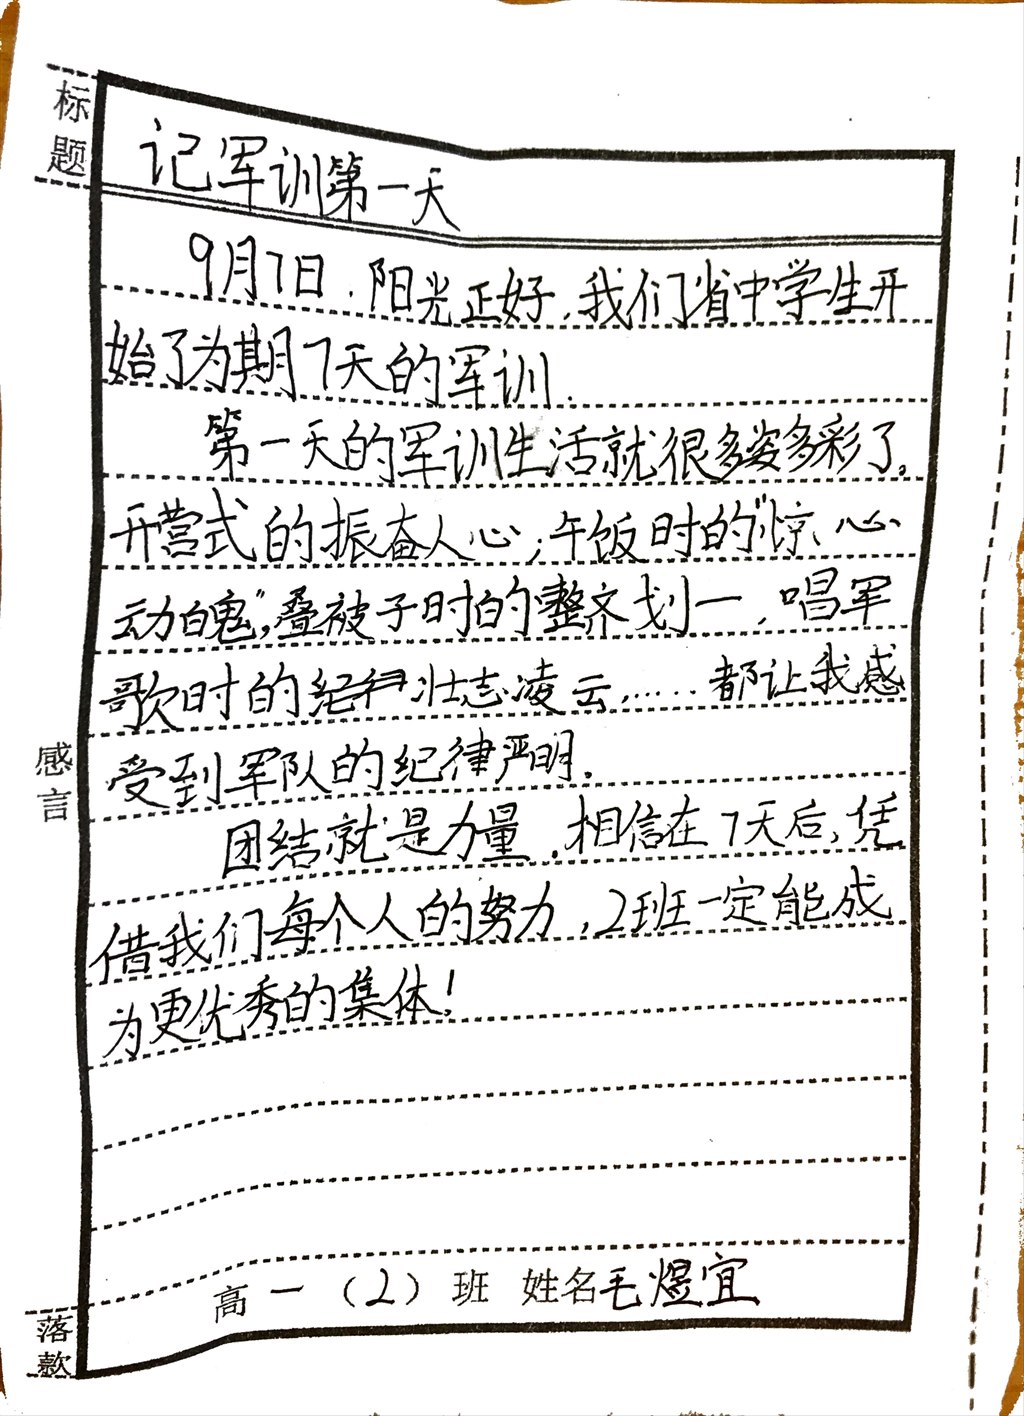 标题
记军训第一天
9月7日,阳光正好,我们省中学生开
始了为期7天的军训.
第一天的军训生活就很多姿多彩了。
开营式的振奋人心;午饭时的"惊心
动魄",叠被子时的整齐划一,唱军
歌时的壮志凌云,……都让我感
受到军队的纪律严明.
感言
团结就是力量,相信在7天后,凭
借我们每个人的努力,2班一定能成
为更优秀的集体!
高一(2)班 姓名毛煜宜
落款